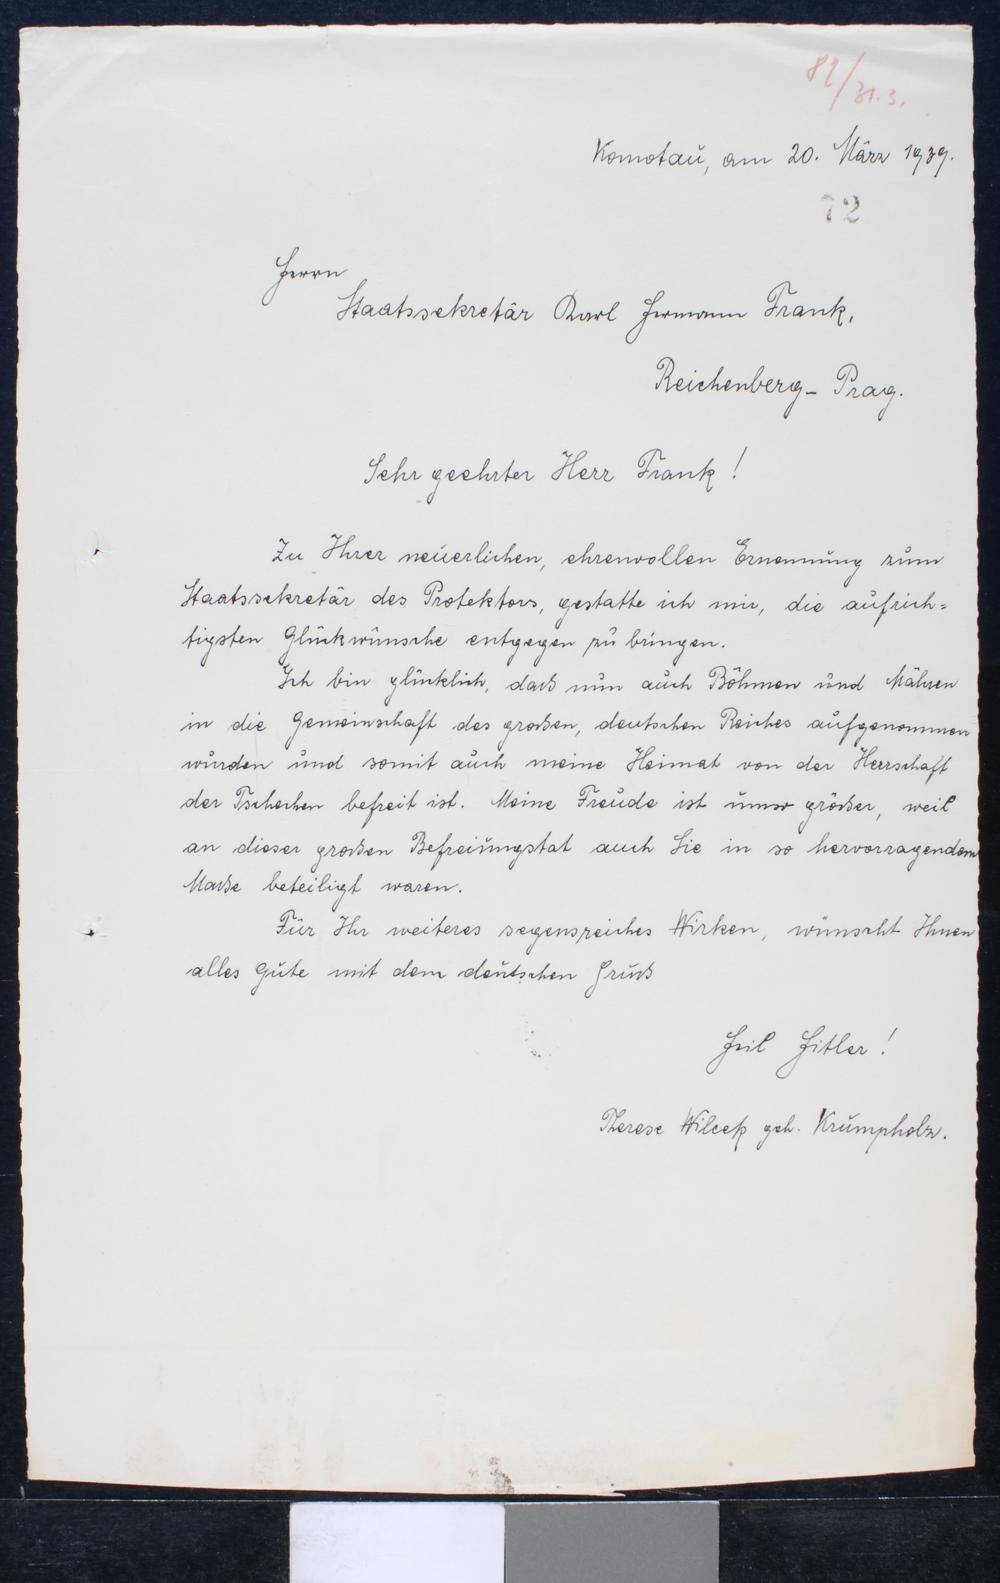 81/31.3.
Komotau, am 20. März 1939.
72
Herrn
Staatssekretär Karl Hermann Frank,
Reichenberg - Prag.
Sehr geehrter Herr Frank!
Zu Ihrer neuerlichen, ehrenvollen Ernennung zum
Staatssekretär des Protektors, gestatte ich mir, die aufrich=
tigsten Glückwünsche entgegen zu bringen.
Ich bin glücklich, daß nun auch Böhmen und Mähren
in die Gemeinschaft des großen, deutschen Reiches aufgenommen
wurden und somit auch meine Heimat von der Herrschaft
der Tschechen befreit ist. Meine Freude ist umso größer, weil
an dieser großen Befreiungstat auch Sie in so hervorragendem
Maße beteiligt waren.
Für Ihr weiteres segensreiches Wirken, wünscht Ihnen
alles Gute mit dem deutschen Gruß
Heil Hitler!
Therese Wilcek geb. Krumpholz.